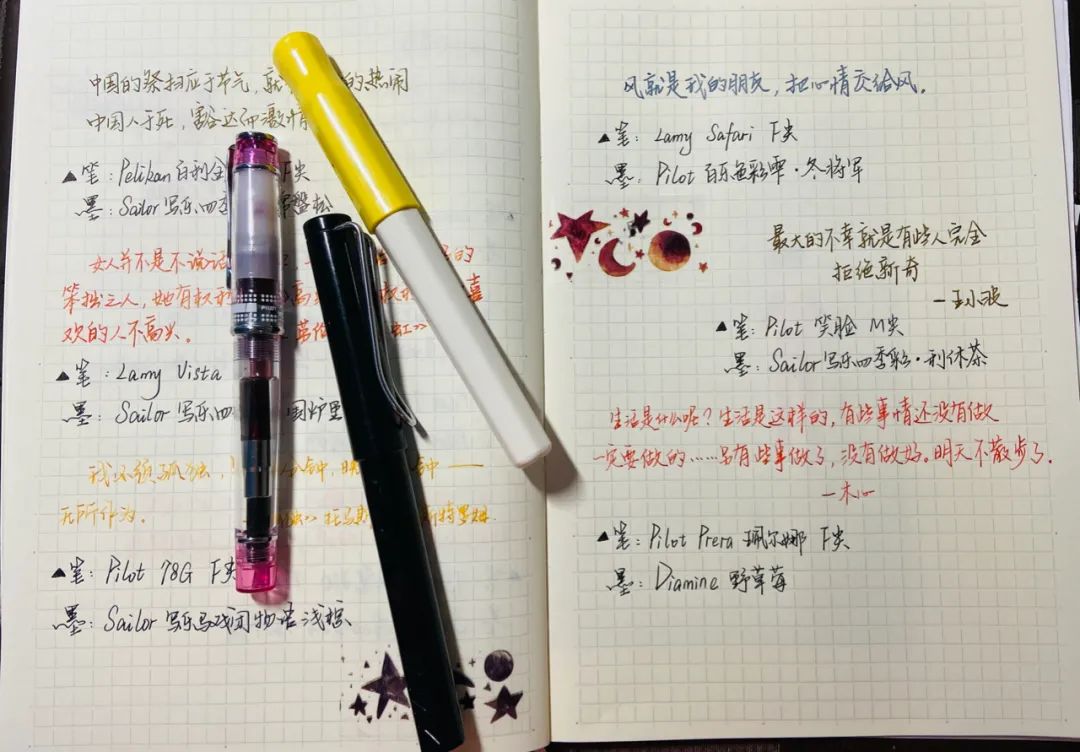 中国的祭扫应于节气,就 的热闹
中国人于死,豁达而激情
▲笔:Pelikan百利金 F尖
墨:Sailor写乐四季 常盤松
女人并不是不说话 的
笨拙之人,她有权利 高 权 喜
欢的人不高兴。
▲笔:Lamy Vista
墨:Sailor写乐四 囲炉里
我还须孤独, 分钟, 钟——
无所作为。
托马斯 斯特罗姆
▲笔:Pilot 78G F尖
墨:Sailor写乐 物语浅棕
PILOT
风就是我的朋友,把心情交给风。
▲笔:Lamy Safari F尖
墨:Pilot 百乐色彩雫·冬将军
最大的不幸就是有些人完全
拒绝新奇
—王小波
▲笔:Pilot 笑脸 M尖
墨:Sailor写乐四季彩·利休茶
生活是什么呢?生活是这样的,有些事情还没有做
一定要做的……另有些事做了,没有做好。明天不散步了.
—木心
▲笔:Pilot Prera 珮尔娜 F尖
墨:Diamine 野草莓